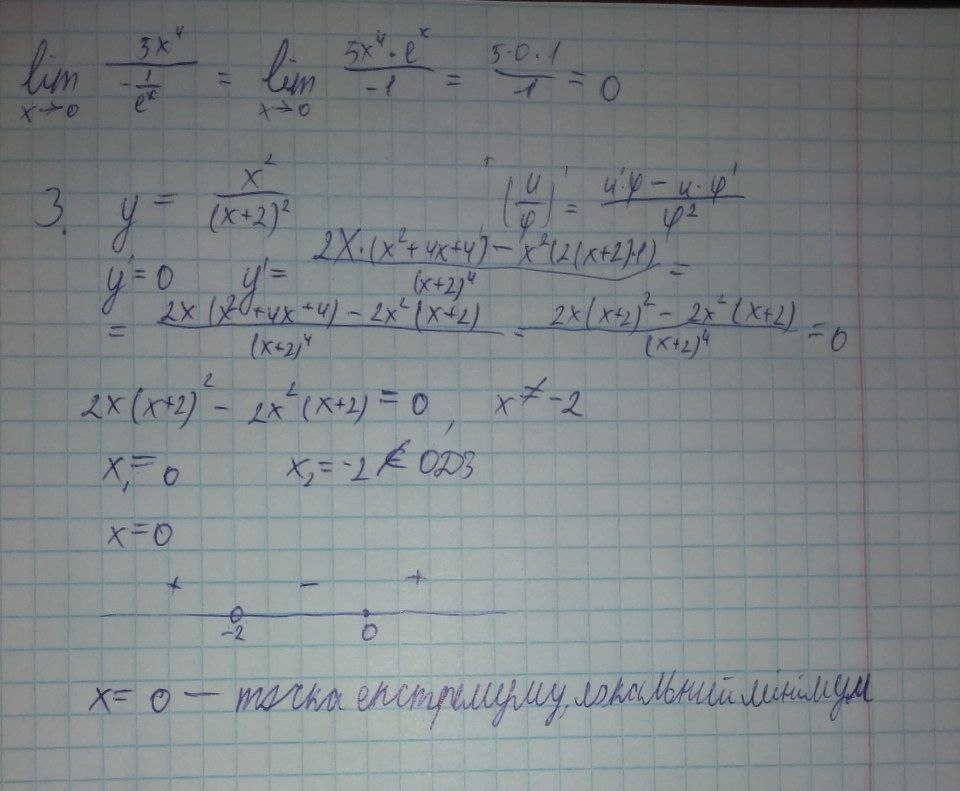 lim x→0 5x⁴ / (-1/eˣ) = lim x→0 (5x⁴·eˣ)/(-1) = (5·0·1)/(-1) = 0
3. y = x²/(x+2)² (u/φ)' = (u'φ - u·φ')/φ²
y'=0 y' = (2x·(x²+4x+4) - x²(2(x+2)·1))/(x+2)⁴ =
= (2x(x²+4x+4) - 2x²(x+2))/(x+2)⁴ = (2x(x+2)² - 2x²(x+2))/(x+2)⁴ = 0
2x(x+2)² - 2x²(x+2) = 0, x ≠ -2
x₁ = 0 x₂ = -2 ∉ ОДЗ
x = 0
+ - +
-2 0
x = 0 — точка екстремуму, локальний мінімум